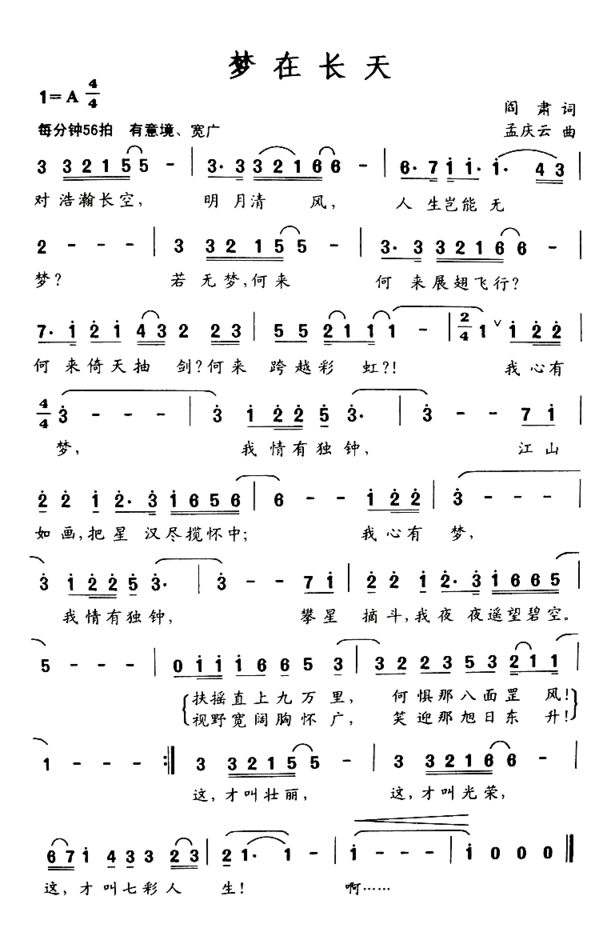 梦在长天
1=A 4/4
阎肃 词
每分钟56拍 有意境、宽广
孟庆云 曲
3 3 2 1 5 5 - | 3· 3 3 2 1 6 6 - | 6· 7 1 1· 1· 4 3 |
对浩瀚长空, 明月清 风, 人生岂能无
2 - - - | 3 3 2 1 5 5 - | 3· 3 3 2 1 6 6 - |
梦? 若无梦,何来 何来展翅飞行?
7· 1 2 1 4 3 2 2 3 | 5 5 2 1 1 1 - | 2/4 1 ∨ 1 2 2 |
何来倚天抽 剑?何来 跨越彩 虹?! 我心有
4/4 3 - - - | 3 1 2 2 5 3· | 3 - - 7 1 |
梦, 我情有独钟, 江山
2 2 1 2· 3 1 6 5 6 | 6 - - 1 2 2 | 3 - - - |
如画,把星 汉尽揽怀中; 我心有 梦,
3 1 2 2 5 3· | 3 - - 7 1 | 2 2 1 2· 3 1 6 6 5 |
我情有独钟, 攀星 摘斗,我夜 夜遥望碧空。
5 - - - | 0 1 1 1 6 6 5 3 | 3 2 2 3 5 3 2 1 1 |
扶摇直上九万里, 何惧那八面罡 风!
视野宽阔胸怀广, 笑迎那旭日东 升!
1 - - - :| 3 3 2 1 5 5 - | 3 3 2 1 6 6 - |
这,才叫壮丽, 这,才叫光荣,
6 7 1 4 3 3 2 3 | 2 1· 1 - | 1 - - - | 1 0 0 0 ‖
这,才叫七彩人 生! 啊……